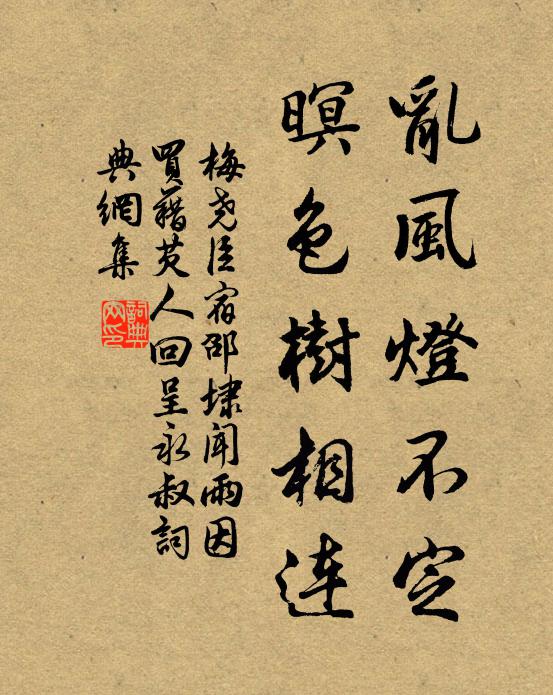 亂風燈不定
暝色樹相連
梅堯臣宿邵埭聞雨因
買藕芡人回呈永叔詞
典網集
詞典
網印